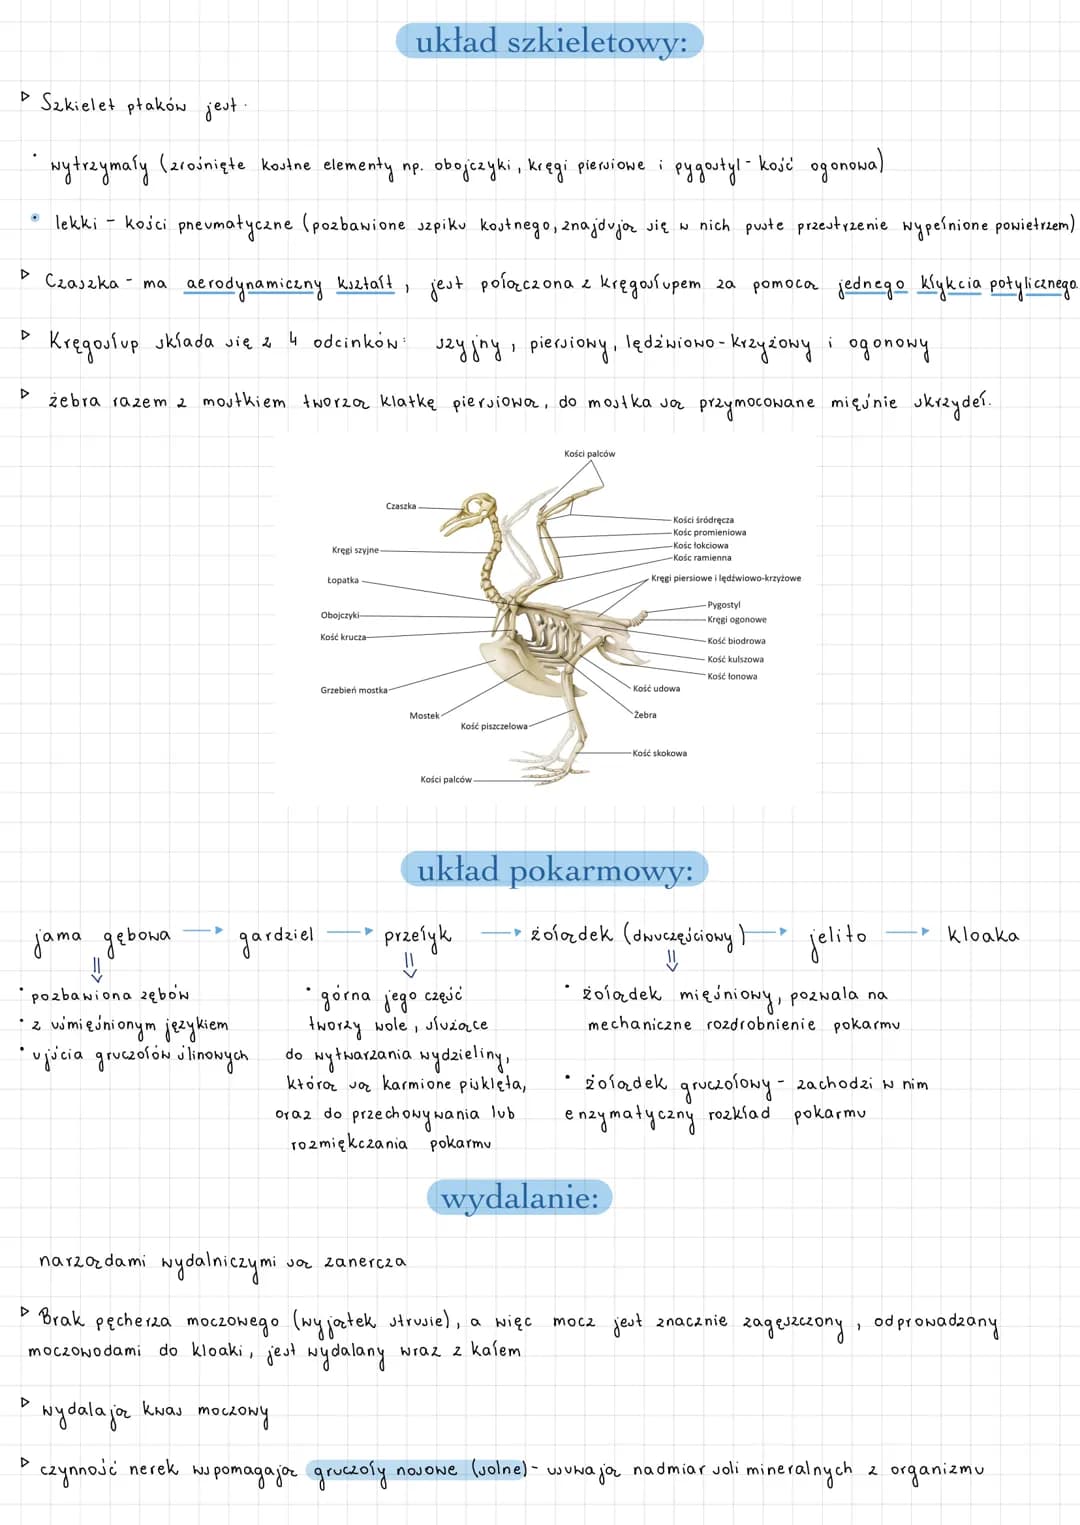 układ szkieletowy:
Szkielet ptaków jest:
wytrzymały (zrośnięte kostne elementy np. obojczyki, kręgi piersiowe i pygostyl - kość ogonowa)
lekki - kości pneumatyczne (pozbawione szpiku kostnego, znajdują się w nich puste przestrzenie wypełnione powietrzem)
Czaszka - ma aerodynamiczny kształt, jest połączona z kręgosłupem za pomocą jednego kłykcia potylicznego.
Kręgosłup składa się z 4 odcinków: szyjny, piersiowy, lędźwiowo-krzyżowy i ogonowy
żebra razem z mostkiem tworzą klatkę piersiową, do mostka są przymocowane mięśnie skrzydeł.
Kości palców
Czaszka
Kości śródręcza
Kośc promieniowa
Kośc łokciowa
Kośc ramienna
Kręgi szyjne
Łopatka
Kręgi piersiowe i lędźwiowo-krzyżowe
Pygostyl
Kręgi ogonowe
Obojczyki
Kość krucza
Kość biodrowa
Kość kulszowa
Kość łonowa
Grzebień mostka
Kość udowa
Mostek
Żebra
Kość piszczelowa
Kość skokowa
Kości palców
układ pokarmowy:
jama gębowa → gardziel → przełyk → żołądek (dwuczęściowy) → jelito → kloaka
pozbawiona zębów
z umięśnionym językiem
ujścia gruczołów ślinowych
górna jego część
tworzy wole, służące
do wytwarzania wydzieliny,
którą są karmione pisklęta,
oraz do przechowywania lub
rozmiękczania pokarmu
żołądek mięśniowy, pozwala na
mechaniczne rozdrobnienie pokarmu
żołądek gruczołowy - zachodzi w nim
enzymatyczny rozkład pokarmu
wydalanie:
narządami wydalniczymi są zanercza
Brak pęcherza moczowego (wyjątek strusie), a więc mocz jest znacznie zagęszczony, odprowadzany
moczowodami do kloaki, jest wydalany wraz z kałem
wydalają kwas moczowy
czynność nerek wspomagają gruczoły nosowe (solne) - usuwają nadmiar soli mineralnych z organizmu